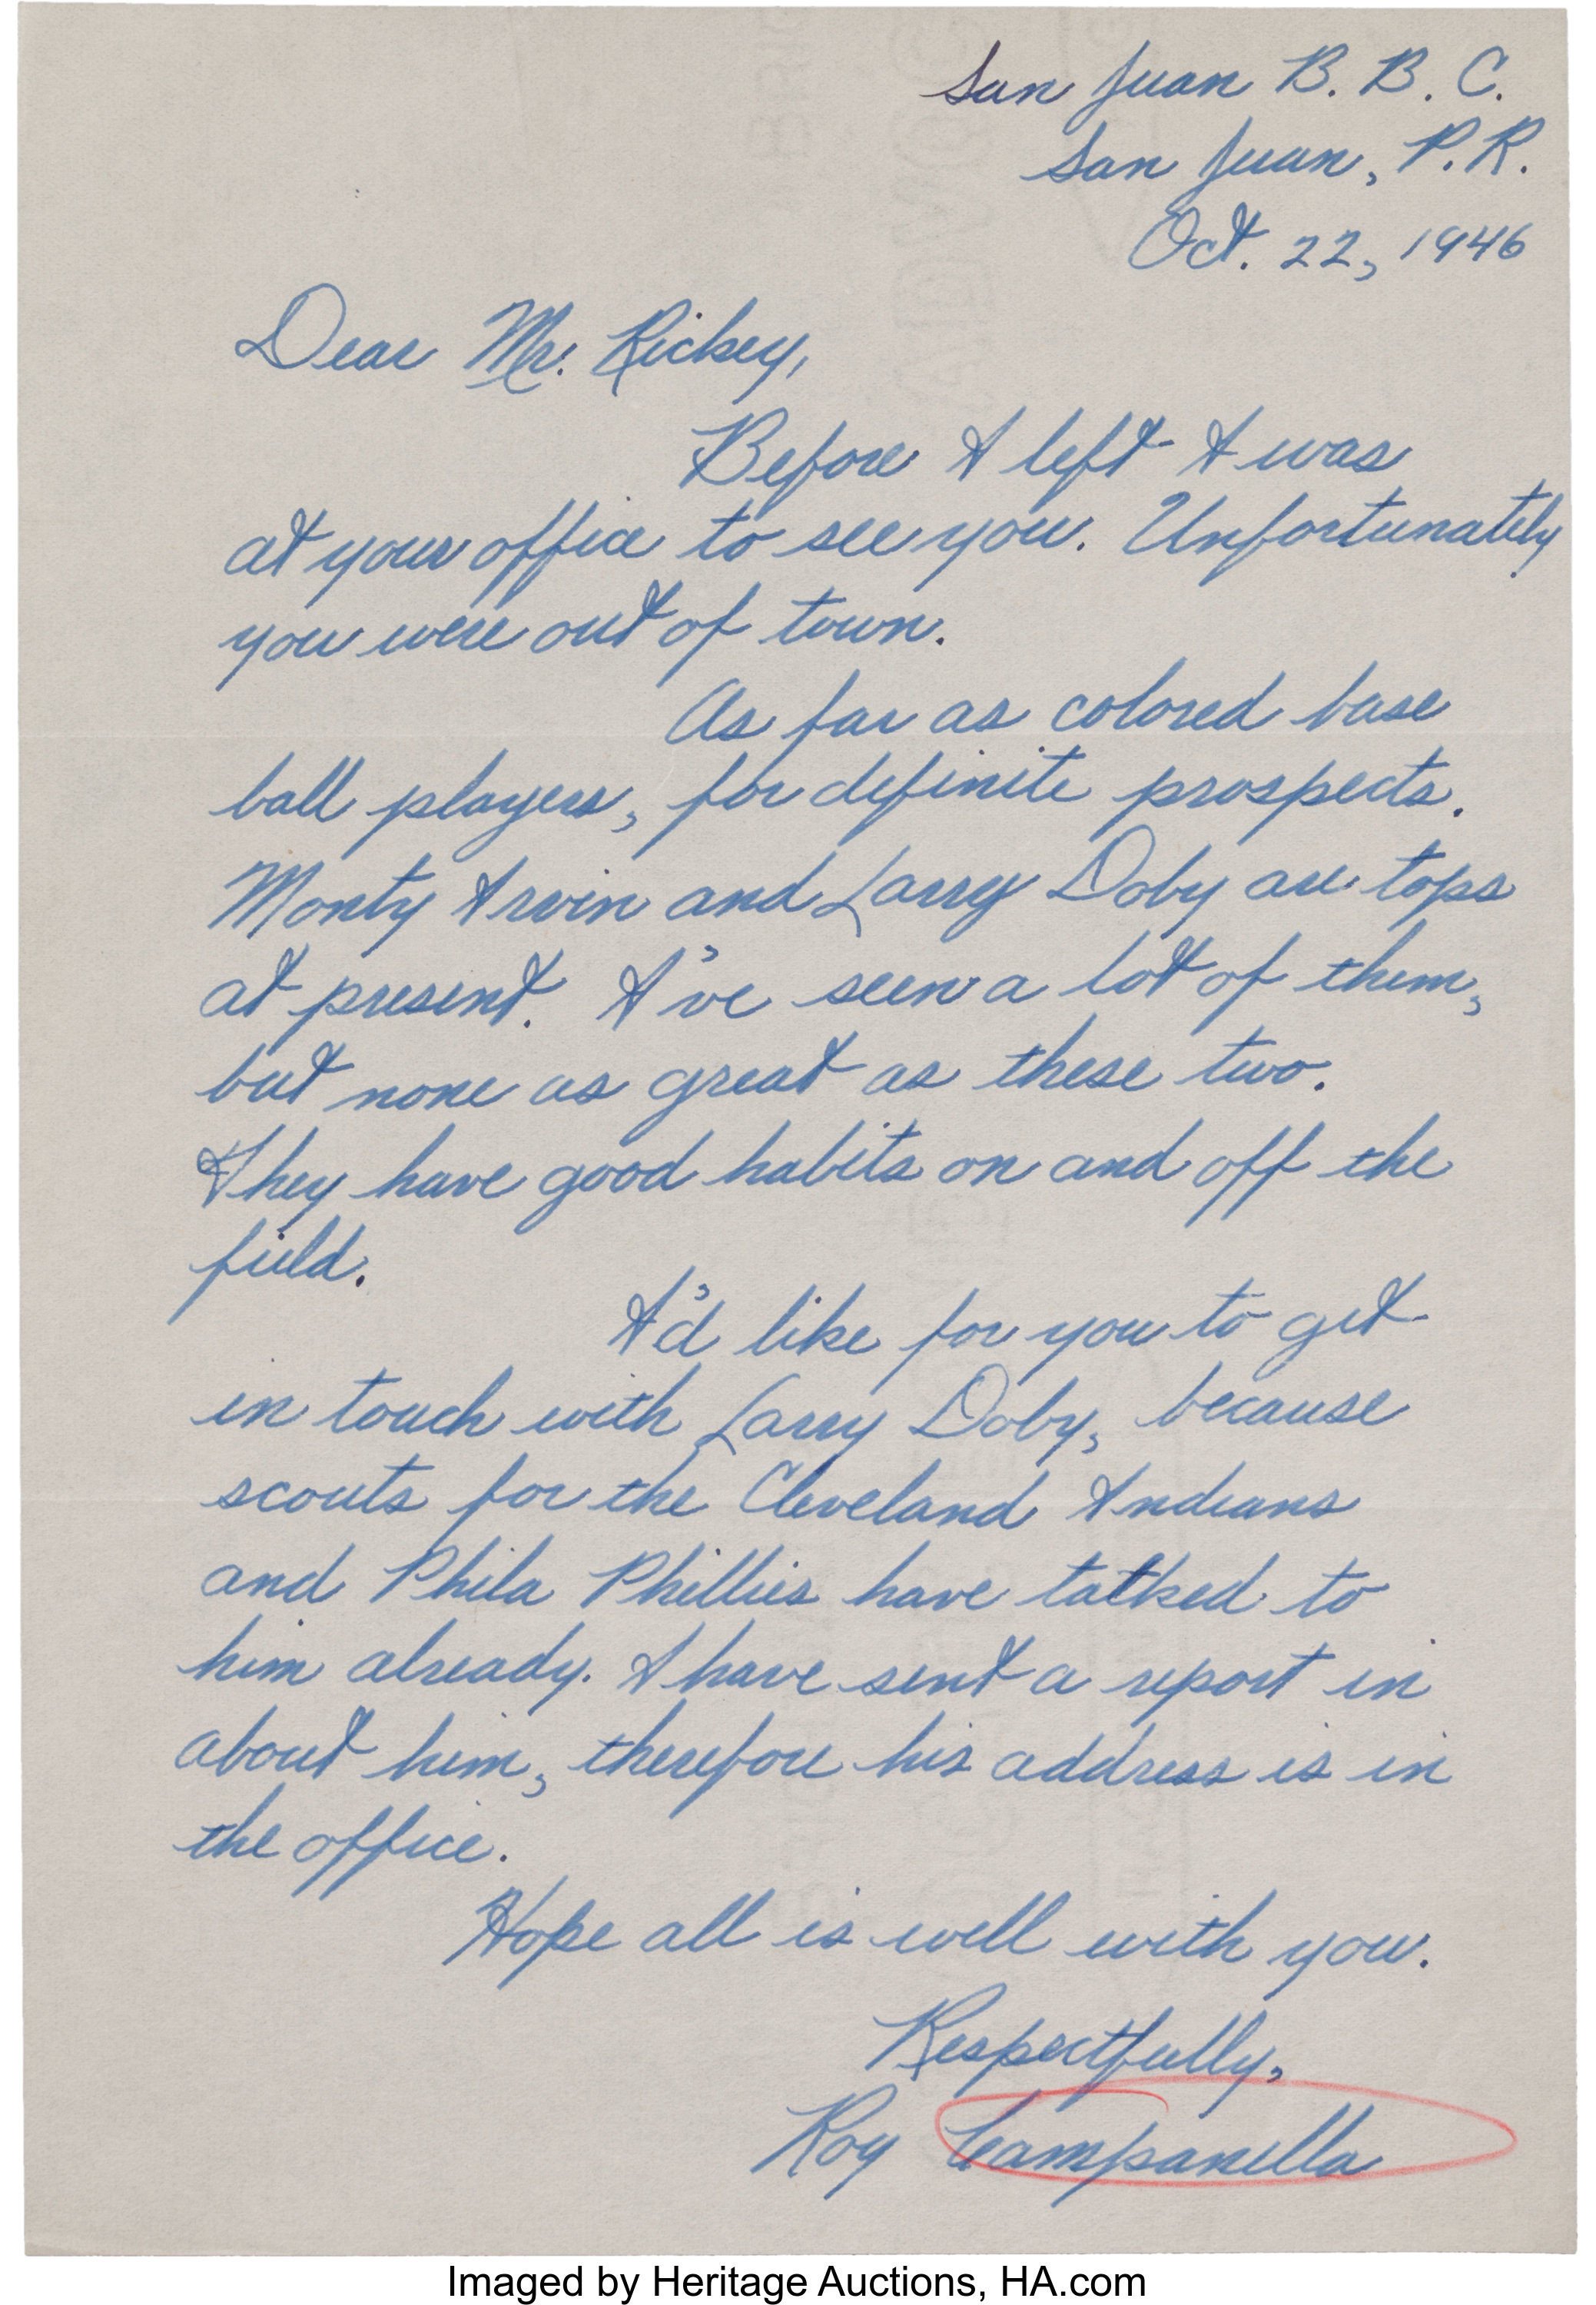 San Juan B. B. C.
San Juan, P.R.
Oct. 22, 1946
Dear Mr. Rickey,
Before I left I was
at your office to see you. Unfortunately
you were out of town.
As far as colored base
ball players, for definite prospects.
Monty Irvin and Larry Doby are tops
at present. I've seen a lot of them,
but none as great as these two.
They have good habits on and off the
field.
I'd like for you to get
in touch with Larry Doby, because
scouts for the Cleveland Indians
and Phila Phillies have talked to
him already. I have sent a report in
about him, therefore his address is in
the office.
Hope all is well with you.
Respectfully,
Roy Campanella
Imaged by Heritage Auctions, HA.com